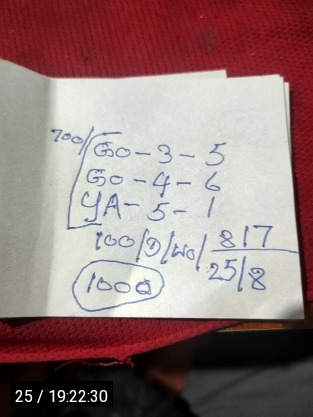 700/
GO - 3 - 5
GO - 4 - 6
YA - 5 - 1
100/ 817
25/8
1000
25 / 19:22:30